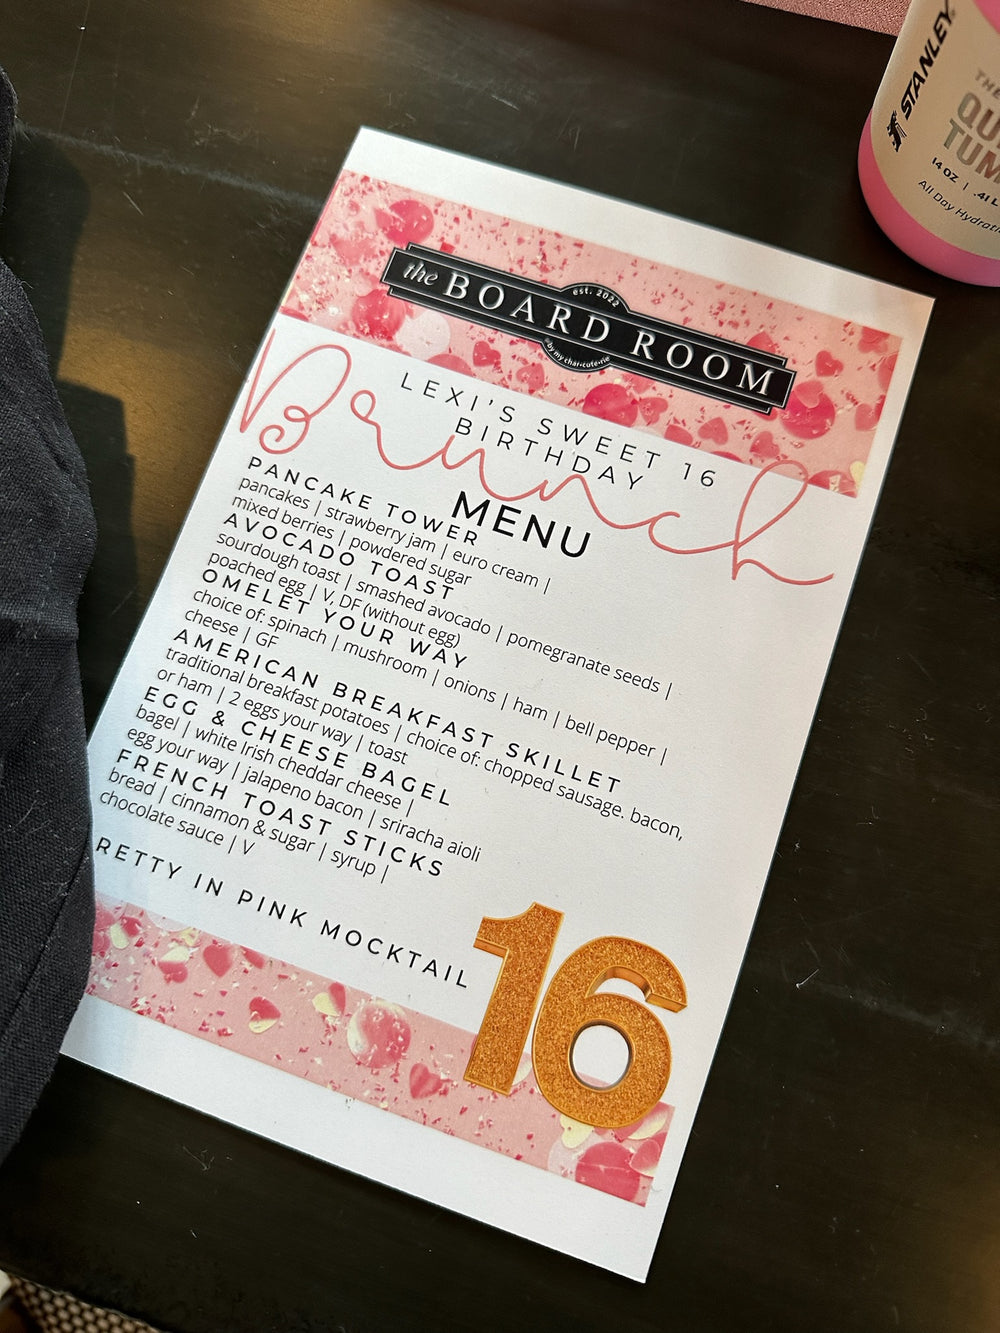 STANLEY
THE
QU
TUM
14 OZ | .41 L
All Day Hydrati
the BOARD ROOM
est. 2022
by my char•cute•rie
LEXI'S SWEET 16
BIRTHDAY
Brunch
MENU
PANCAKE TOWER
pancakes | strawberry jam | euro cream |
mixed berries | powdered sugar
AVOCADO TOAST
sourdough toast | smashed avocado | pomegranate seeds |
poached egg | V, DF (without egg)
OMELET YOUR WAY
choice of: spinach | mushroom | onions | ham | bell pepper |
cheese | GF
AMERICAN BREAKFAST SKILLET
traditional breakfast potatoes | choice of: chopped sausage. bacon,
or ham | 2 eggs your way | toast
EGG & CHEESE BAGEL
bagel | white Irish cheddar cheese |
egg your way | jalapeno bacon | sriracha aioli
FRENCH TOAST STICKS
bread | cinnamon & sugar | syrup |
chocolate sauce | V
RETTY IN PINK MOCKTAIL
16